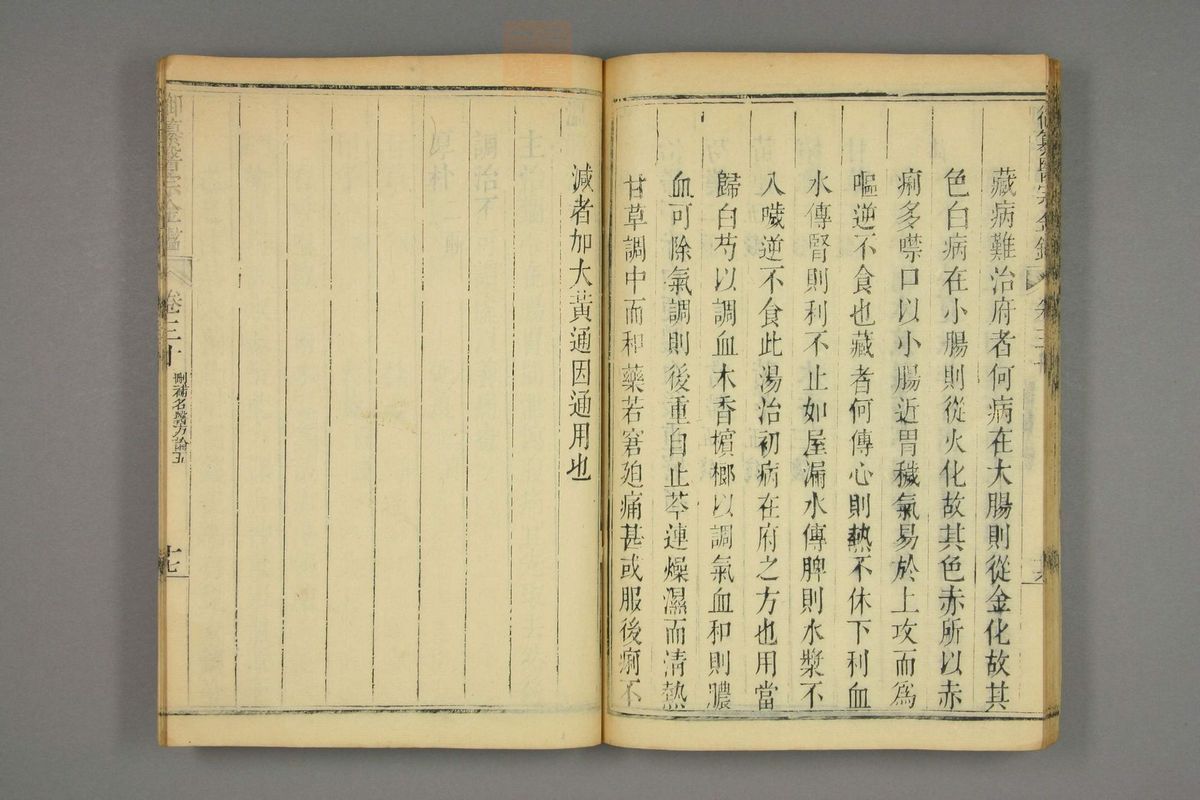 御纂醫宗金鑑 卷三十
藏病難治府者何病在大腸則從金化故其
色白病在小腸則從火化故其色赤所以赤
痢多噤口以小腸近胃穢氣易於上攻而為
嘔逆不食也藏者何傳心則熱不休下利血
水傳腎則利不止如屋漏水傳脾則水漿不
入噦逆不食此湯治初病在府之方也用當
歸白芍以調血木香檳榔以調氣血和則膿
血可除氣調則後重自止芩連燥濕而清熱
甘草調中而和藥若窘廹痛甚或服後痢不
減者加大黃通因通用也
御纂醫宗金鑑 卷三十 刪補名醫方論五 十七